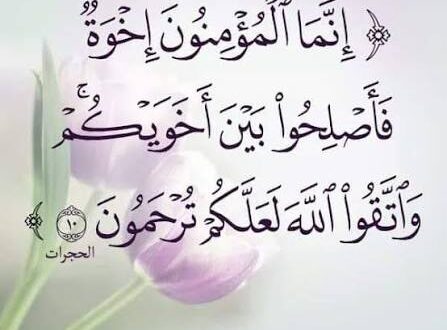 ﴿ إِنَّمَا ٱلْمُؤْمِنُونَ إِخْوَةٌ
فَأَصْلِحُوا۟ بَيْنَ أَخَوَيْكُمْ ۚ
وَٱتَّقُوا۟ ٱللَّهَ لَعَلَّكُمْ تُرْحَمُونَ ۝١٠ ﴾
الحجرات